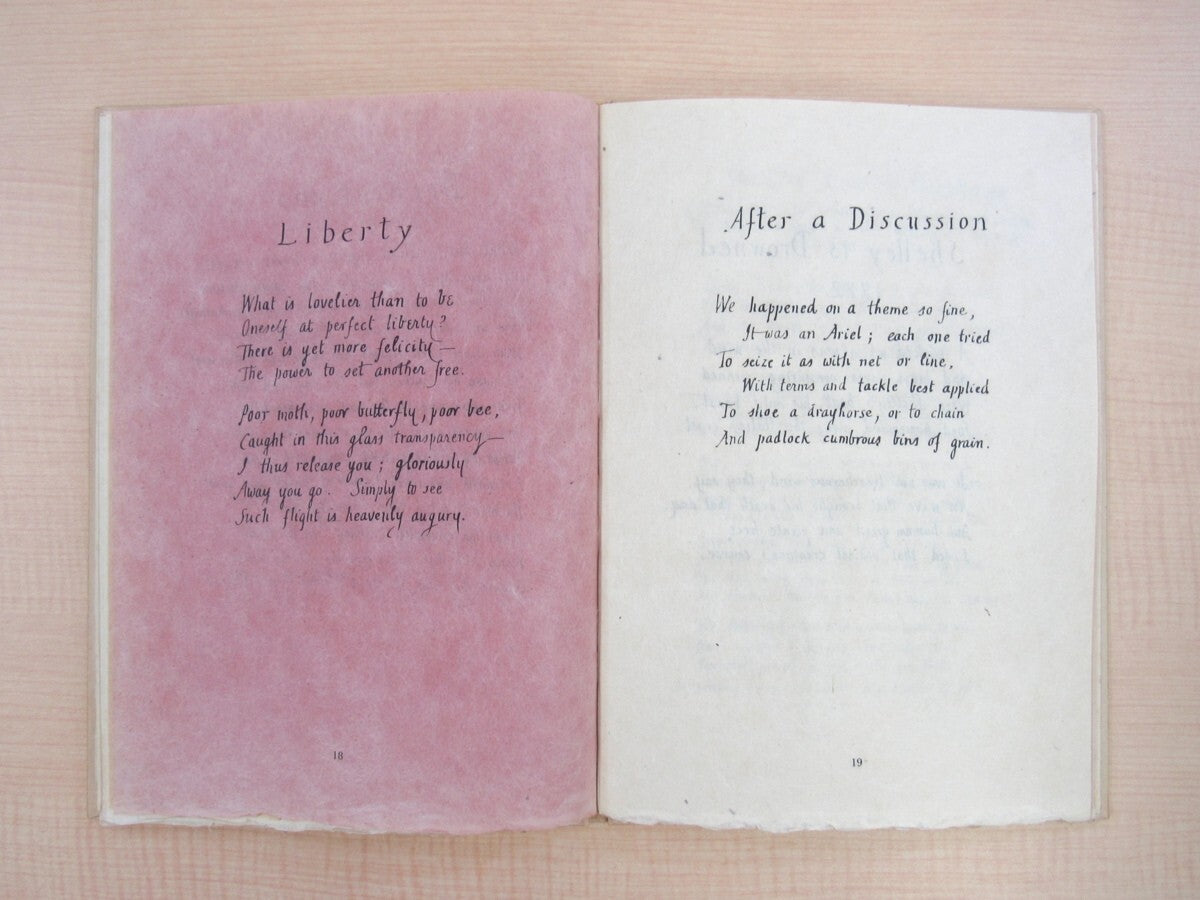 Liberty
What is lovelier than to be
Oneself at perfect liberty?
There is yet more felicity —
The power to set another free.
Poor moth, poor butterfly, poor bee,
Caught in this glass transparency —
I thus release you; gloriously
Away you go. Simply to see
Such flight is heavenly augury.
18
After a Discussion
We happened on a theme so fine,
It was an Ariel; each one tried
To seize it as with net or line,
With terms and tackle best applied
To shoe a drayhorse, or to chain
And padlock cumbrous bins of grain.
19
Shelley is Drowned